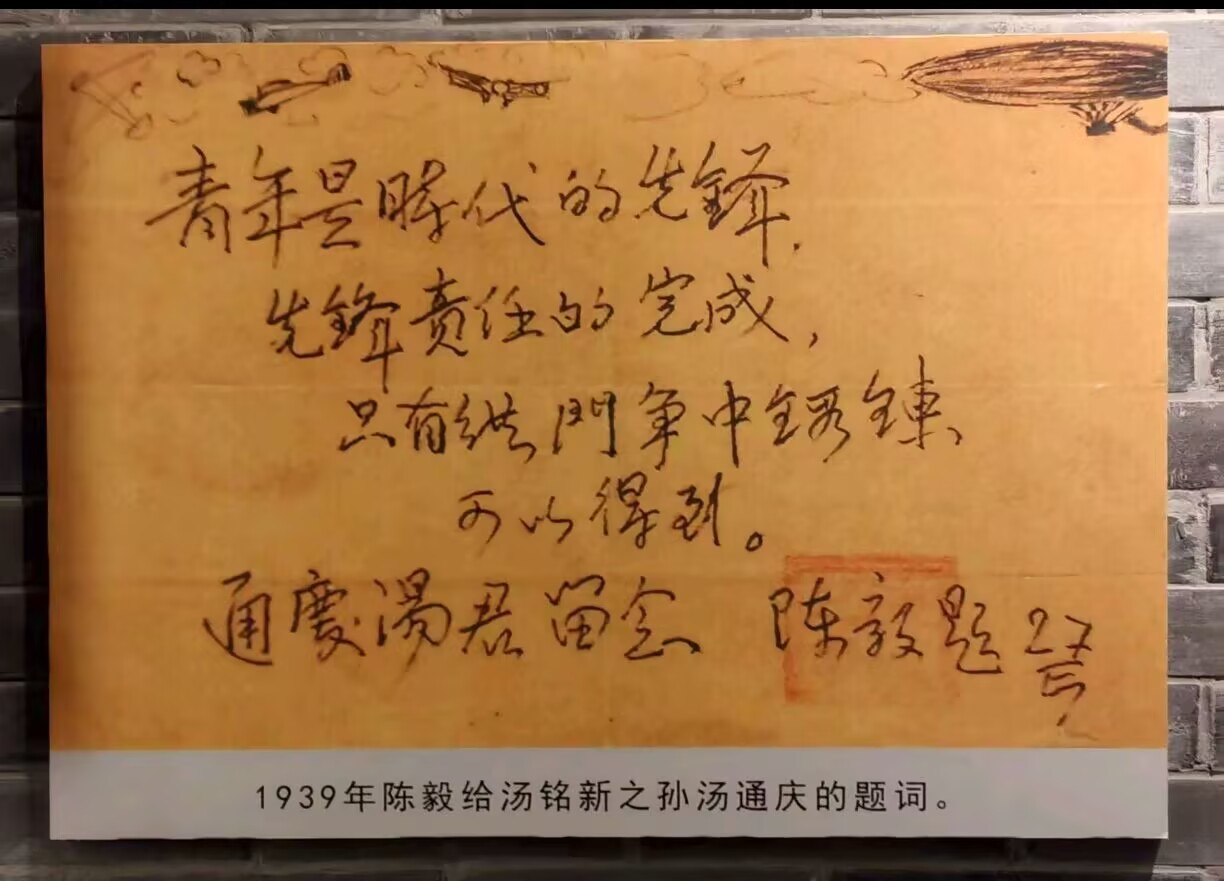 青年是時代的先鋒,
先鋒責任的完成,
只有 鬥争中鍛鍊、
可以得到。
通慶湯君留念 陈毅題 27
1939年陈毅给汤铭新之孙汤通庆的题词。